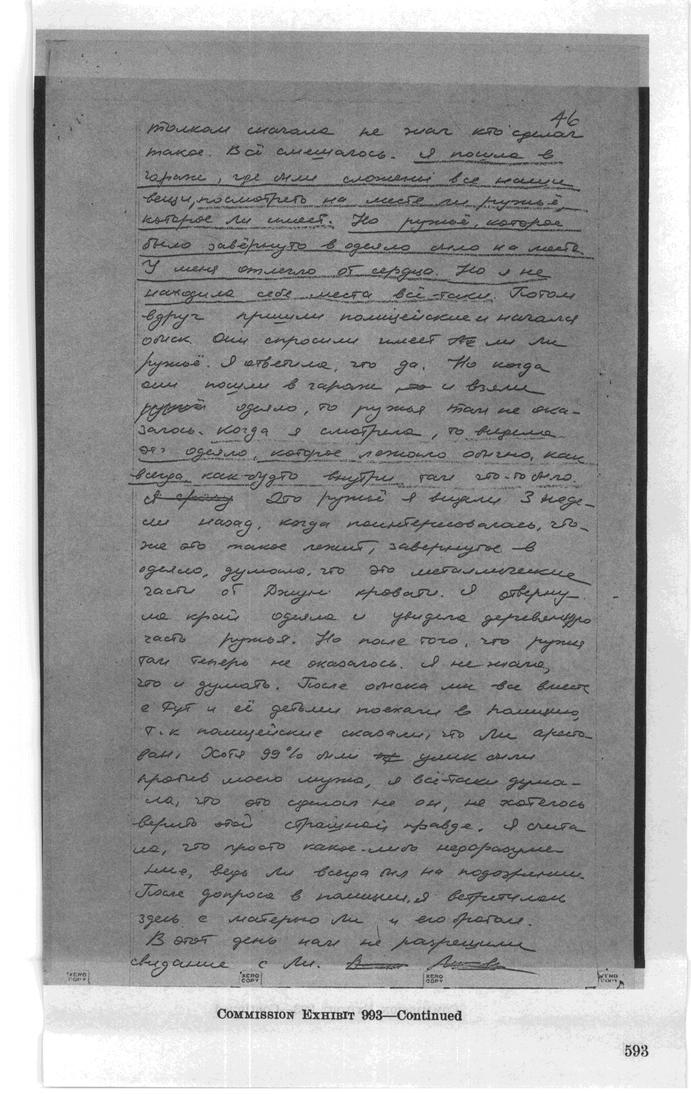 46
толком сначала не знал кто сделал
такое. Всё смешалось. Я пошла в
гараж, где были сложены все наши
вещи, посмотреть на месте ли ружьё,
которое Ли имеет. Но ружьё, которое
было завёрнуто в одеяло было на месте.
У меня отлегло от сердца. Но я не
находила себе места всё-таки. Потом
вдруг пришли полицейские и начался
обыск. Они спросили имеет ли Ли
ружьё. Я ответила, что да. Но когда
они пошли в гараж и взяли
одеяло, то ружья там не ока-
залось. Когда я смотрела, то видела
это одеяло, которое лежало обычно, как
всегда, как-будто внутри там что-то было.
Я Это ружьё я видела 3 неде-
ли назад, когда поинтересовалась, что-
же это такое лежит, завернутое в
одеяло, думала, что это металлические
части от Джуни кровати. Я отверну-
ла край одеяла и увидела деревянную
часть ружья. Но после того, что ружья
там теперь не оказалось. Я не знала,
что и думать. После обыска мы все вместе
с Рут и её детьми поехали в полицию,
т.к полицейские сказали, что Ли аресто-
ван. Хотя 99% были улик были
против моего мужа, я всё-таки дума-
ла, что это сделал не он, не хотелось
верить этой страшной правде. Я счита
ла, что просто какое-либо недоразуме-
ние, ведь Ли всегда был на подозрении.
После допроса в полиции, я встретилась
здесь с матерью Ли и его братом.
В этот день нам не разрешили
свидание с Ли.
XERO COPY
XERO COPY
XERO COPY
XERO COPY
COMMISSION EXHIBIT 993—Continued
593